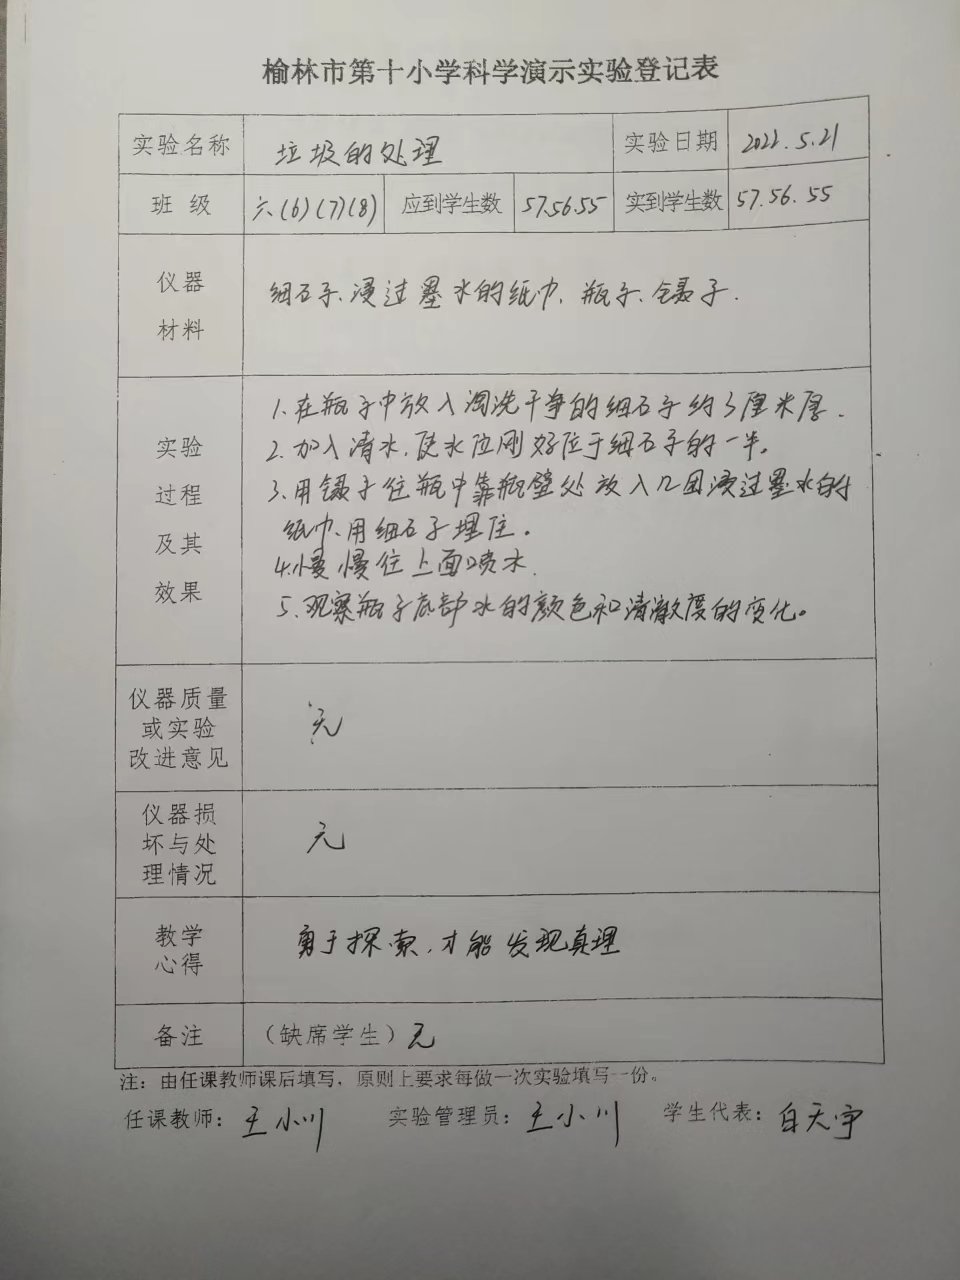 榆林市第十小学科学演示实验登记表
实验名称 垃圾的处理 实验日期 2022.5.21
班 级 六(6)(7)(8) 应到学生数 57.56.55 实到学生数 57.56.55
仪器
材料
细石子、浸过墨水的纸巾、瓶子、镊子.
实验
过程
及其
效果
1.在瓶子中放入淘洗干净的细石子约3厘米厚.
2.加入清水,使水位刚好位于细石子的一半。
3.用镊子往瓶中靠瓶壁处放入几团浸过墨水的
纸巾、用细石子埋住。
4.慢慢往上面喷水.
5.观察瓶子底部水的颜色和清澈度的变化。
仪器质量
或实验
改进意见
无
仪器损
坏与处
理情况
无
教学
心得
勇于探索,才能发现真理
备注 (缺席学生)无
注:由任课教师课后填写,原则上要求每做一次实验填写一份。
任课教师:王小川 实验管理员:王小川 学生代表:白天宇